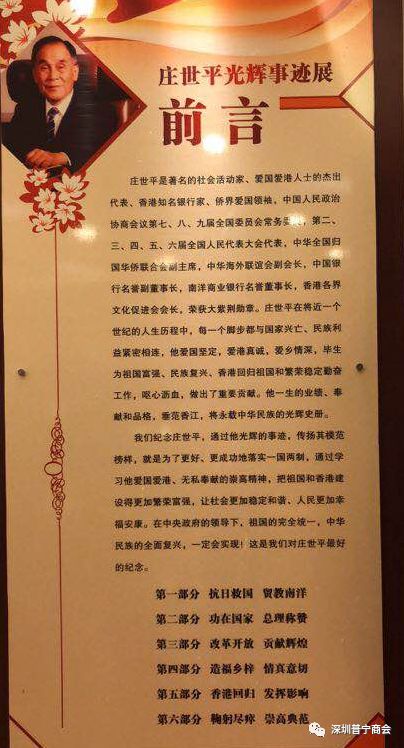 庄世平光辉事迹展
前言
庄世平是著名的社会活动家、爱国爱港人士的杰出
代表、香港知名银行家、侨界爱国领袖,中国人民政治
协商会议第七、八、九届全国委员会常务委,第二、
三、四、五、六届全国人民代表大会代表,中华全国归
国华侨联合会副主席,中华海外联谊会副会长,中国银
行名誉副董事长,南洋商业银行名誉董事长,香港各界
文化促进会会长,荣获大紫荆勋章。庄世平在将近一个
世纪的人生历程中,每一个脚步都与国家兴亡、民族利
益紧密相连,他爱国坚定,爱港真诚,爱乡情深,毕生
为祖国富强、民族复兴、香港回归祖国和繁荣稳定勤奋
工作,呕心沥血,做出了重要贡献。他一生的业绩、奉
献和品格,垂范香江,将永载中华民族的光辉史册。
我们纪念庄世平,通过他光辉的事迹,传扬其模范
榜样,就是为了更好、更成功地落实一国两制,通过学
习他爱国爱港、无私奉献的崇高精神,把祖国和香港建
设得更加繁荣富强,让社会更加稳定和谐、人民更加幸
福安康。在中央政府的领导下,祖国的完全统一,中华
民族的全面复兴,一定会实现!这是我们对庄世平最好
的纪念。
第一部分 抗日救国 贸教南洋
第二部分 功在国家 总理称赞
第三部分 改革开放 贡献辉煌
第四部分 造福乡梓 情真意切
第五部分 香港回归 发挥影响
第六部分 鞠躬尽瘁 崇高典范
深圳普宁商会